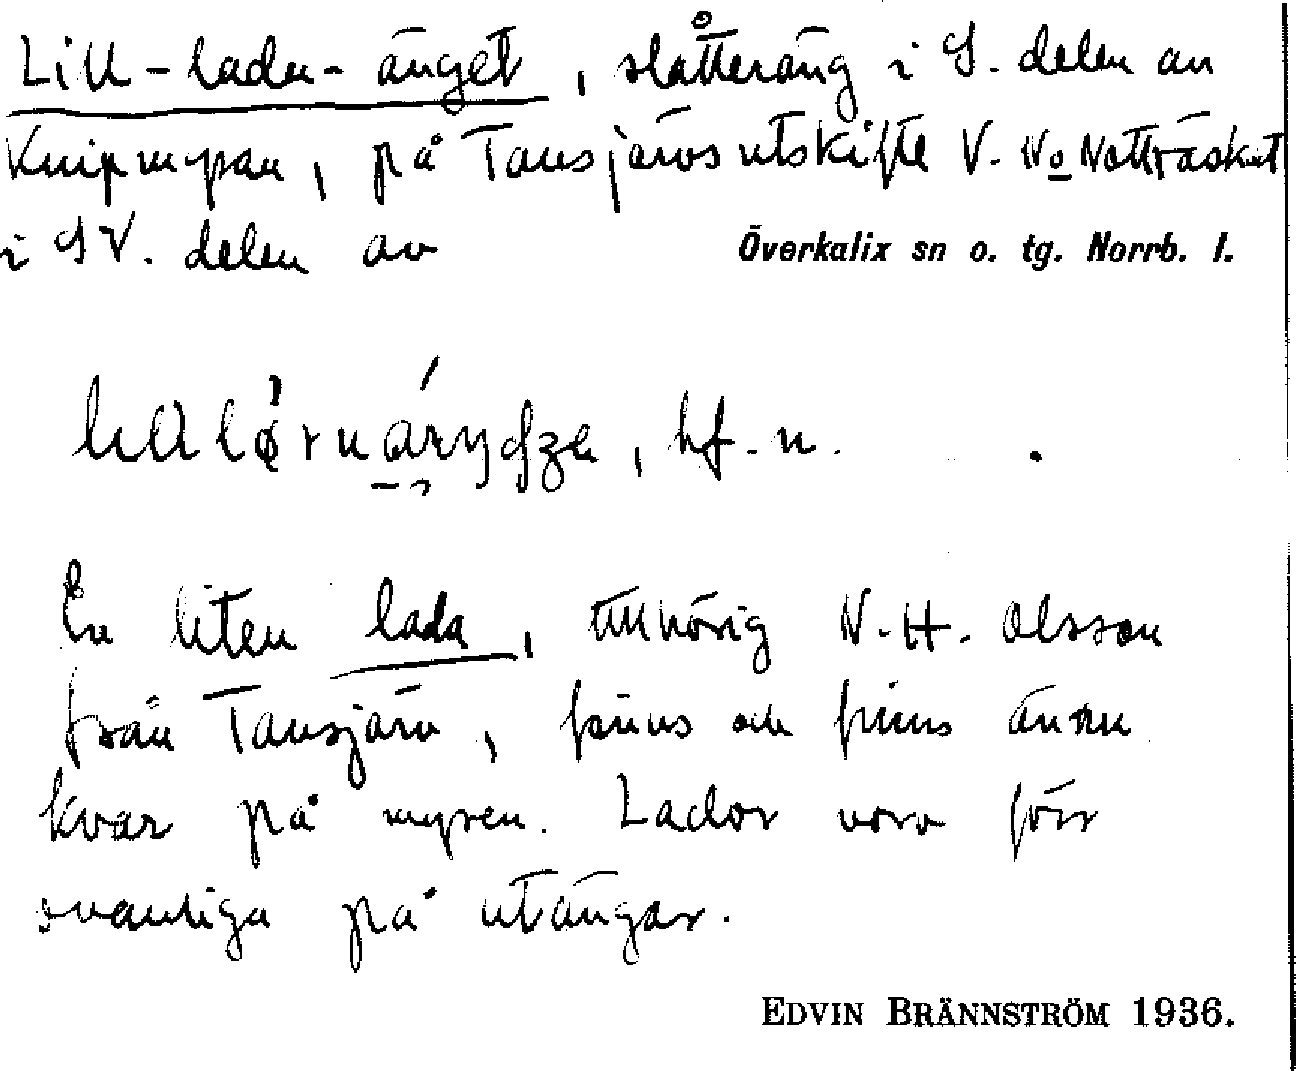 Lill-ladu-änget, slåtteräng i S. delen av
Knipmyran, på Tansjärvs utskifte V. No Notträsket
i SV. delen av Överkalix sn o. tg. Norrb. l.
, bf. n.
En liten lada, tillhörig N. H. Olsson
från Tansjärv, fanns och finns ännu
kvar på myren. Lador voro förr
ovanliga på utängar.
EDVIN BRÄNNSTRÖM 1936.